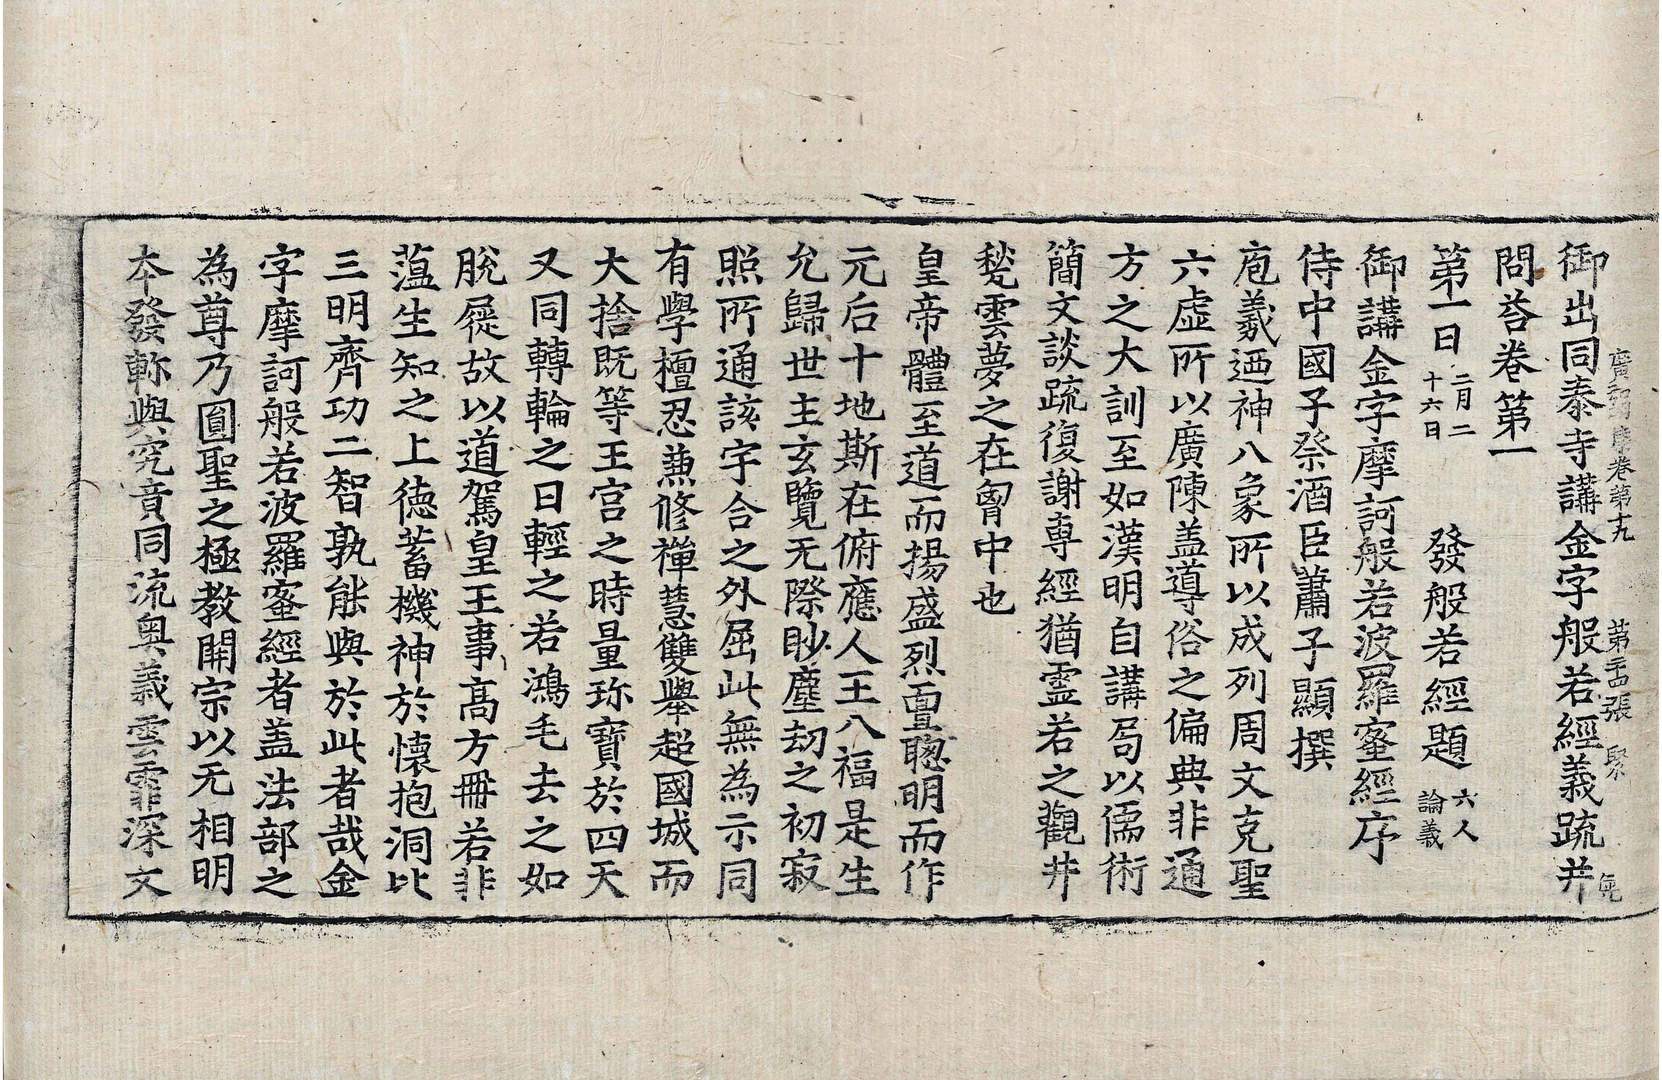 御出同泰寺講金字般若經義疏幷
問荅卷第一
第一日 二月二十六日 發般若經題 六人論義
御講金字摩訶般若波羅蜜經序
侍中國子祭酒臣蕭子顯撰
庖羲迺神八象所以成列周文克聖
六虛所以廣陳盖導俗之偏典非通
方之大訓至如漢明自講局以儒術
簡文談疏復謝専經猶靈若之觀井
甃雲夢之在匈中也
皇帝體至道而揚盛烈亶聰明而作
元后十地斯在俯應人王八福是生
允歸世主玄覽无際眇塵劫之初寂
照所通該字合之外屈此無為示同
有學檀忍兼修禪慧雙舉超國城而
大捨既等王宫之時量珎寶於四天
又同轉輪之日輕之若鴻毛去之如
脫屣故以道駕皇王事髙方冊若非
薀生知之上德蓄機神於懷抱洞比
三明齊功二智孰能與於此者哉金
字摩訶般若波羅蜜經者盖法部之
為尊乃圓聖之極教開宗以无相明
本發軫與究竟同流奥義雲霏深文